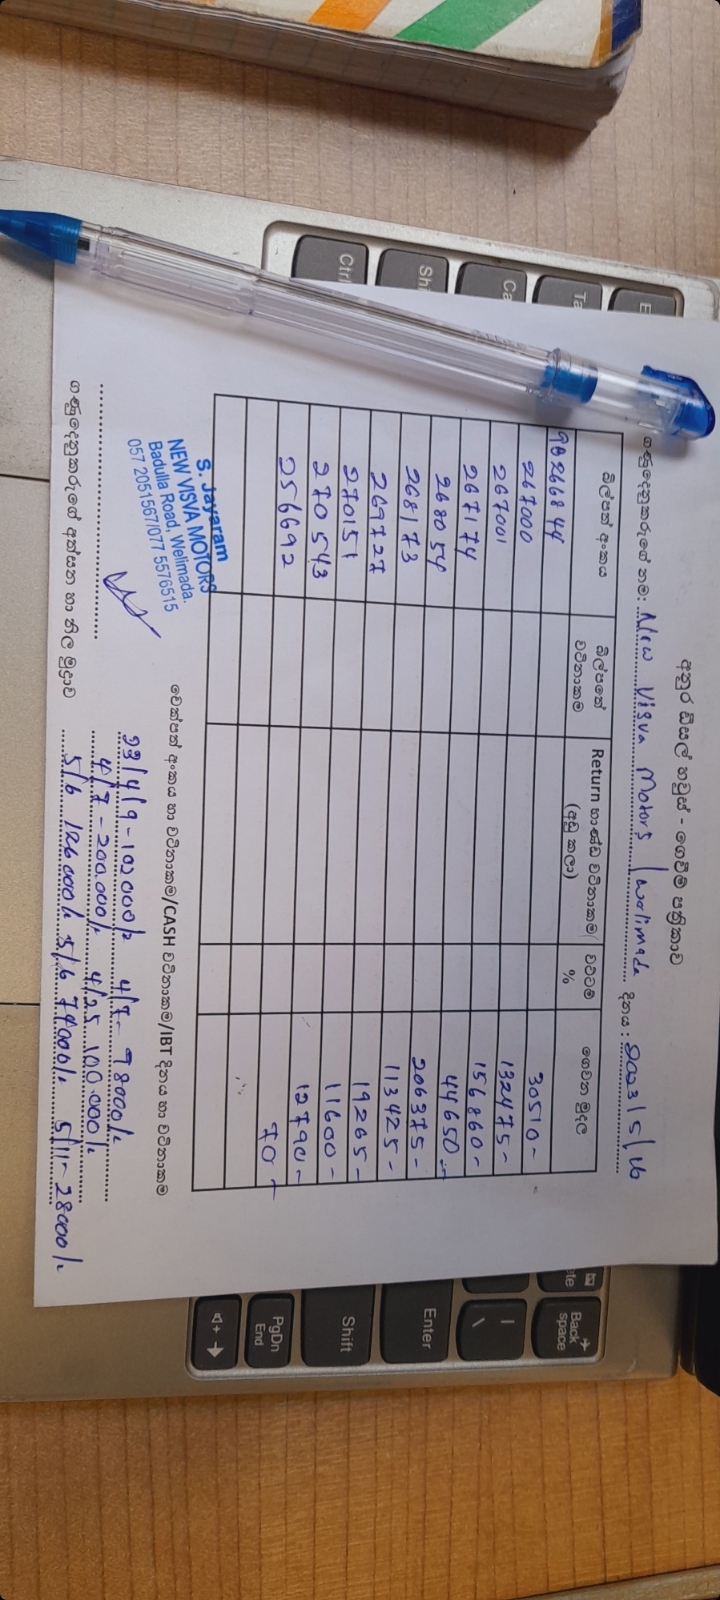 අනුර ඩීසල් හවුස් - ගෙවීම් පත්‍රිකාව
ගණුදෙනුකරුගේ නම: New Visva Motors / Welimada දිනය : 2023/5/16
බිල්පත් අංකය බිල්පතේ වටිනාකම Return භාණ්ඩ වටිනාකම (අඩු කලා) වට්ටම් % ගෙවන මුදල
266844 30510-
267000 132475-
267001 156860-
267174 44650-
268054 206375-
268173 113425-
269727 19265-
270151 11600-
270543 12790-
256692 70-
S. Jayaram
NEW VISVA MOTORS
Badulla Road, Welimada.
057 2051567/077 5576515
ගණුදෙනුකරුගේ අත්සන හා නිල මුද්‍රාව
චෙක්පත් අංකය හා වටිනාකම/CASH වටිනාකම/IBT දිනය හා වටිනාකම
23/4/9-102000/- 4/7- 98000/-
4/7-200.000/- 4/25 100.000/-
5/6 126000/- 5/6 74000/- 5/11-28000/-
Ctrl
Sh
Ca
Ta
E
Back space
Enter
Shift
PgDn
End